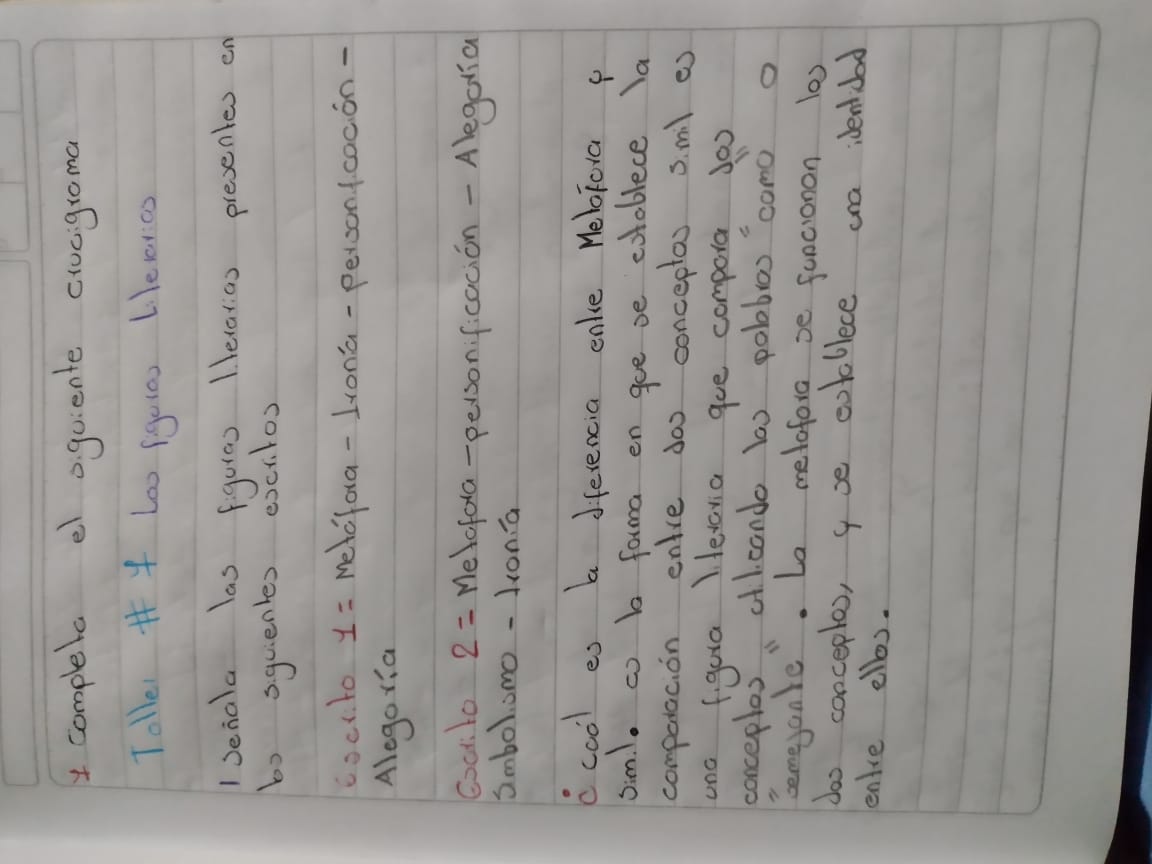 * Completa el siguiente crucigrama
Taller # 1 Las figuras literarias
1 Señala las figuras lterarias presentes en
los siguientes escritos
Escrito 1 = Metáfora - Ironía - personificación -
Alegoría
Escrito 2 = Metafora - personificación - Alegoría
Simbolismo - Ironía
¿ Cuál es la diferencia entre Metáfora y
Simil. es la forma en que se establece la
comparación entre dos conceptos simil es
una figura literaria que compara dos
conceptos utilicando las palabras "como" o
"semejante". La metafora se funcionan los
dos conceptos, y se establece una identidad
entre ellos.